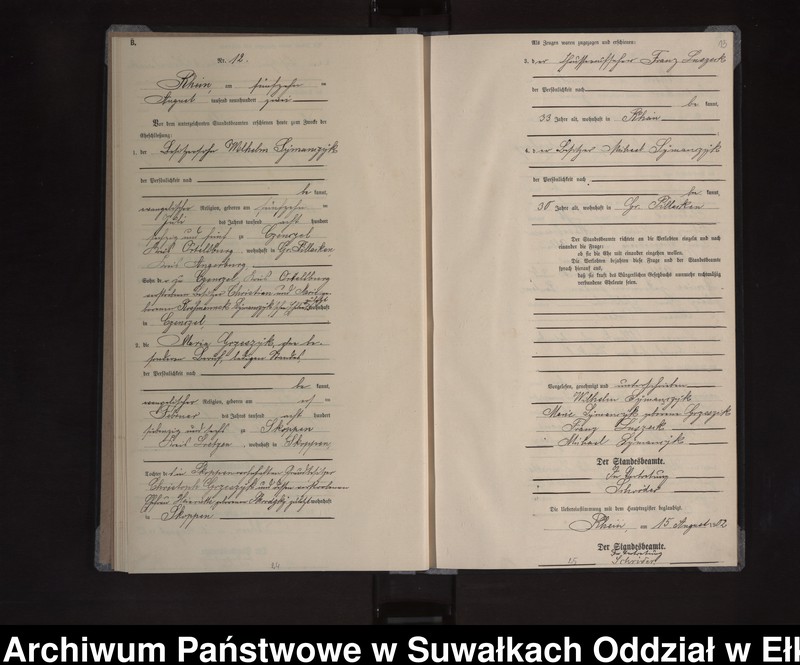 B.
Nr. 12.
Rhein, am fünfzehn ten
August tausend neunhundert zwei
Vor dem unterzeichneten Standesbeamten erschienen heute zum Zwecke der
Eheschließung:
1. der Besitzersohn Wilhelm Symanczyk
der Persönlichkeit nach
be kannt,
evangelischer Religion, geboren am fünfzehn ten
Juli des Jahres tausend acht hundert
sechzig und fünf zu Czenczel
Kreis Ortelsburg, wohnhaft in Gr. Pillacken
Kreis Angerburg
Sohn des zu Czenczel, Kreis Ortelsburg
verstorbenen Besitzer Christian und
geborenen Symanczyk'schen Eheleute wohnhaft
in Czenczel
2. die Maria Gorzeszyk, ohne be-
sonderen Beruf, ledigen Standes
der Persönlichkeit nach
be kannt,
evangelischer Religion, geboren am ten
Februar des Jahres tausend acht hundert
siebenzig und sechs zu Skoppen
Kreis Loetzen, wohnhaft in Skoppen
Tochter des in Skoppen verstorbenen Grundbesitzer
Christoph Gorzeszyk und dessen verstorbenen
Ehefrau geborenen zuletzt wohnhaft
in Skoppen
24
Als Zeugen waren zugezogen und erschienen:
13
3. der Franz Luszeck
der Persönlichkeit nach
be kannt,
33 Jahre alt, wohnhaft in Rhein
4. der Besitzer Michael Symanczyk
der Persönlichkeit nach
be kannt,
30 Jahre alt, wohnhaft in Gr. Pillacken
Der Standesbeamte richtete an die Verlobten einzeln und nach
einander die Frage:
ob sie die Ehe mit einander eingehen wollen.
Die Verlobten bejahten diese Frage und der Standesbeamte
sprach hierauf aus,
daß sie kraft des Bürgerlichen Gesetzbuchs nunmehr rechtmäßig
verbundene Eheleute seien.
Vorgelesen, genehmigt und unterschrieben
Wilhelm Symanczyk
Marie Symanczyk geborene Gorzeszyk
Franz Luszeck
Michael Symanczyk
Der Standesbeamte.
In Vertretung
Schröder
Die Uebereinstimmung mit dem Hauptregister beglaubigt.
Rhein, am 15 August 1902
Der Standesbeamte.
In Vertretung
Schröder
15
Archiwum Państwowe w Suwałkach Oddział w Ełk